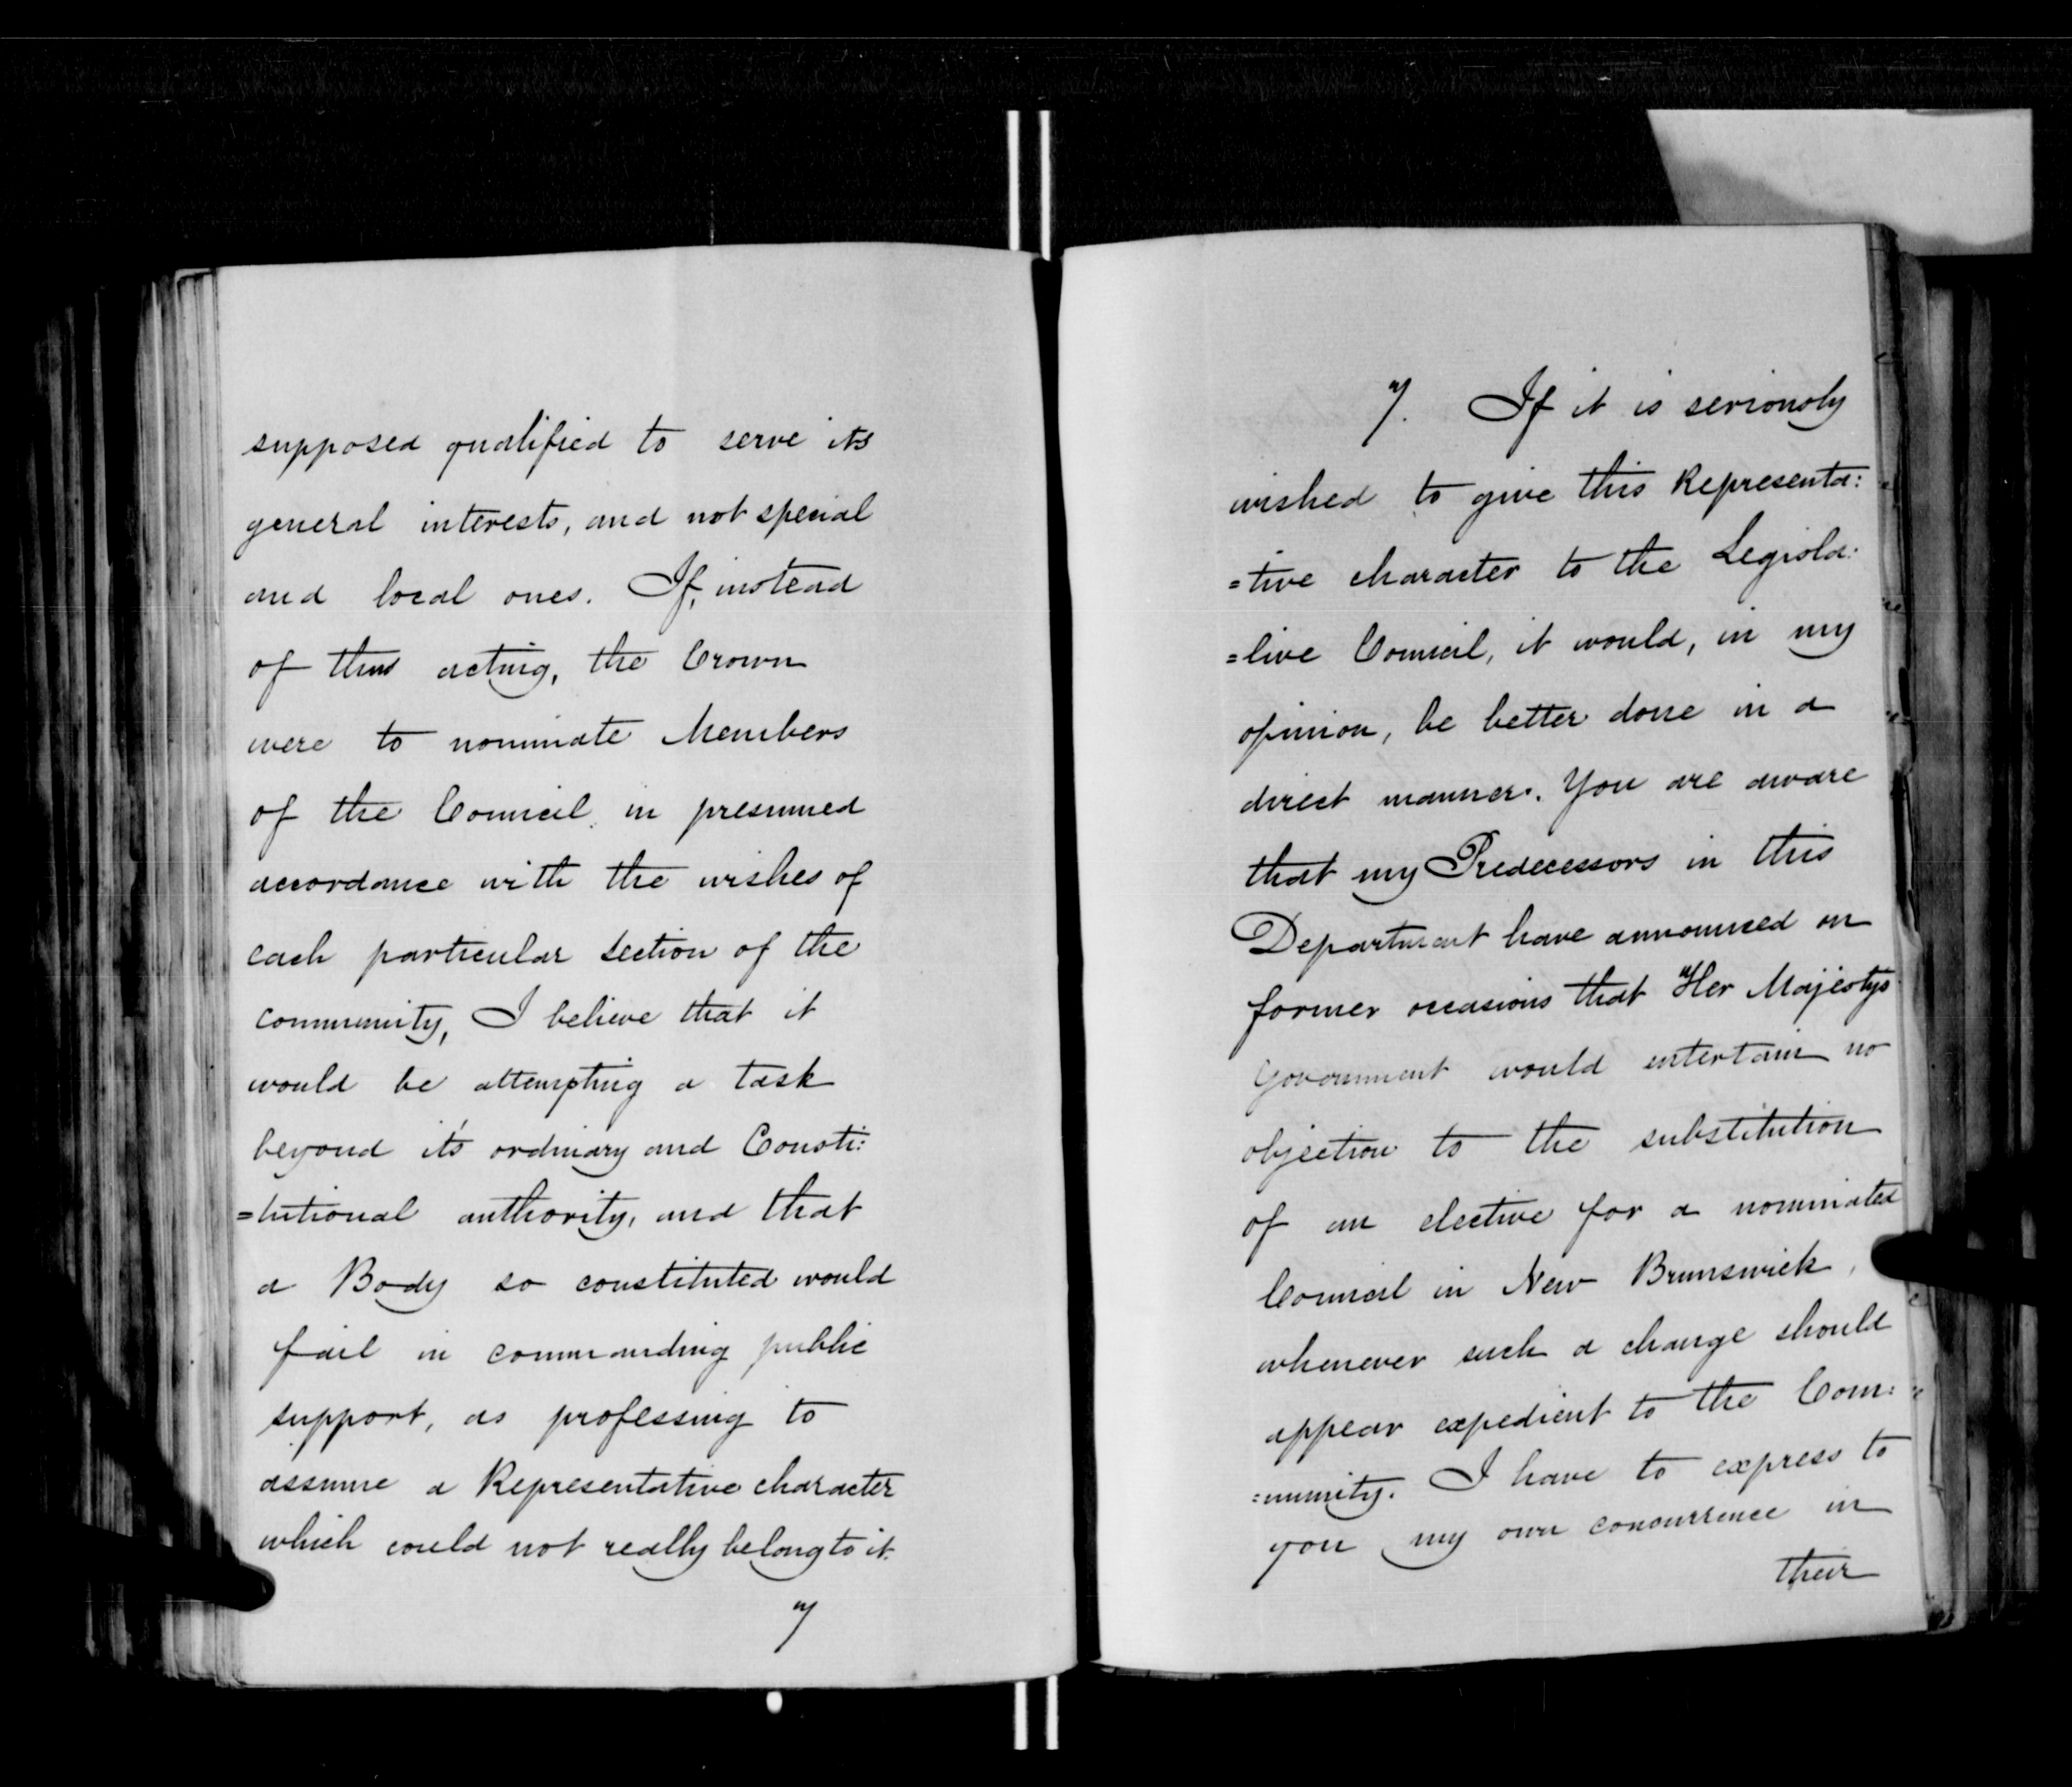 supposed qualified to serve its
general interests, and not special
and local ones. If, instead
of thus acting, the Crown
were to nominate Members
of the Council, in presumed
accordance with the wishes of
each particular section of the
community, I believe that it
would be attempting a task
beyond its ordinary and Consti:
=tutional authority, and that
a Body so constituted would
fail in commanding public
support, as professing to
assume a Representative character
which could not really belong to it.
7
7. If it is seriously
wished to give this Representa:
=tive character to the Legisla:
=tive Council, it would, in my
opinion, be better done in a
direct manner. You are aware
that my Predecessors in this
Department have announced on
former occasions that Her Majestys
Government would entertain no
objection to the substitution
of an elective for a nominated
Council in New Brunswick,
whenever such a change should
appear expedient to the Com:
=munity. I have to express to
you my own concurrence in
their